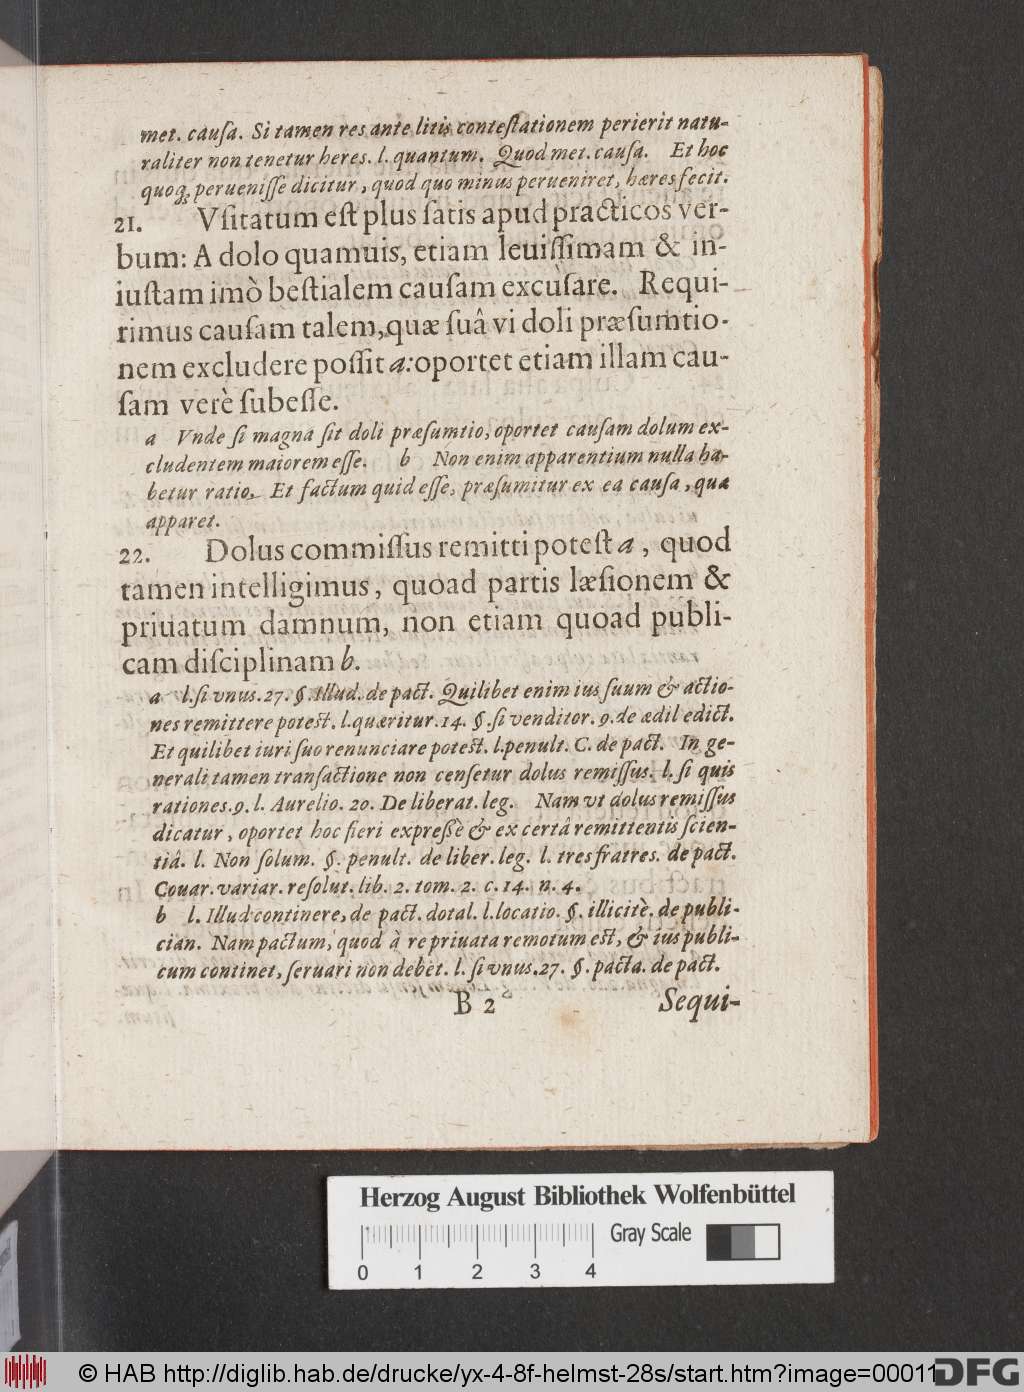 met. cauſa. Si tamen res ante litis conteſtationem perierit natu-
raliter non tenetur heres. l. quantum. Quod met. cauſa. Et hoc
quoq; perueniſſe dicitur, quod quo minus perueniret, hæres fecit.
21. Vſitatum eſt plus ſatis apud practicos ver-
bum: A dolo quamuis, etiam leuiſſimam & in-
iuſtam imò beſtialem cauſam excùſare. Requi-
rimus cauſam talem, quæ ſuâ vi doli præſumtio-
nem excludere poſſit a: oportet etiam illam cau-
ſam verè ſubeſſe.
a Vnde ſi magna ſit doli præſumtio, oportet cauſam dolum ex-
cludentem maiorem eſſe. b Non enim apparentium nulla ha-
betur ratio. Et factum quid eſſe, præſumitur ex ea cauſa, quæ
apparet.
22. Dolus commiſſus remitti poteſt a, quod
tamen intelligimus, quoad partis læſionem &
priuatum damnum, non etiam quoad publi-
cam diſciplinam b.
a l. ſi vnus. 27. §. Illud. de pact. Quilibet enim ius ſuum & actio-
nes remittere poteſt. l. quæritur. 14. §. ſi venditor. 9. de ædil edict.
Et quilibet iuri ſuo renunciare poteſt. l. penult. C. de pact. In ge-
nerali tamen tranſactione non cenſetur dolus remiſſus. l. ſi quis
rationes. 9. l. Aurelio. 20. De liberat. leg. Nam vt dolus remiſſus
dicatur, oportet hoc fieri expreſſè & ex certâ remittentis ſcien-
tiâ. l. Non ſolum. §. penult. de liber. leg. l. tres fratres. de pact.
Couar. variar. reſolut. lib. 2. tom. 2. c. 14. n. 4.
b l. Illud continere, de pact. dotal. l. locatio. §. illicitè. de publi-
cian. Nam pactum, quod à re priuata remotum eſt, & ius publi-
cum continet, ſeruari non debet. l. ſi vnus. 27. §. pacta. de pact.
B 2 Sequi-
Herzog August Bibliothek Wolfenbüttel
Gray Scale
0 1 2 3 4
© HAB http://diglib.hab.de/drucke/yx-4-8f-helmst-28s/start.htm?image=00011
DFG